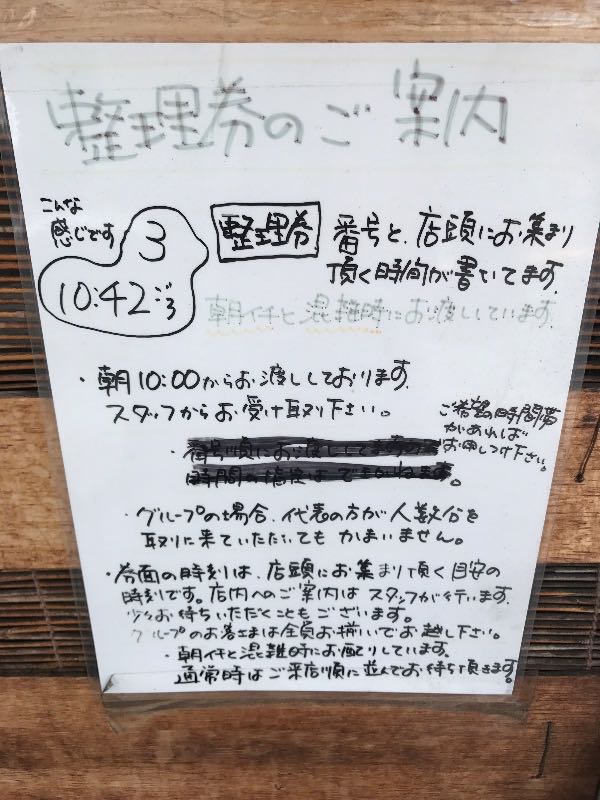 整理券のご案内
こんな
感じです
3
10:42ごろ
整理券
番号と、店頭にお集まり
頂く時間が書いてます。
朝イチと混雑時にお渡ししています
・朝10:00からお渡ししております。
スタッフからお受け取り下さい。
ご希望の時間帯
があれば
お申しつけ下さい。
・グループの場合、代表の方が人数分を
取りに来ていただいてもかまいません。
・券面の時刻は、店頭にお集まり頂く目安の
時刻です。店内へのご案内はスタッフが行います。
少々お待ちいただくこともございます。
グループのお客さまは全員お揃いでお越し下さい。
・朝イチと混雑時にお配りしています。
通常時はご来店順に並んでお待ち頂きます。